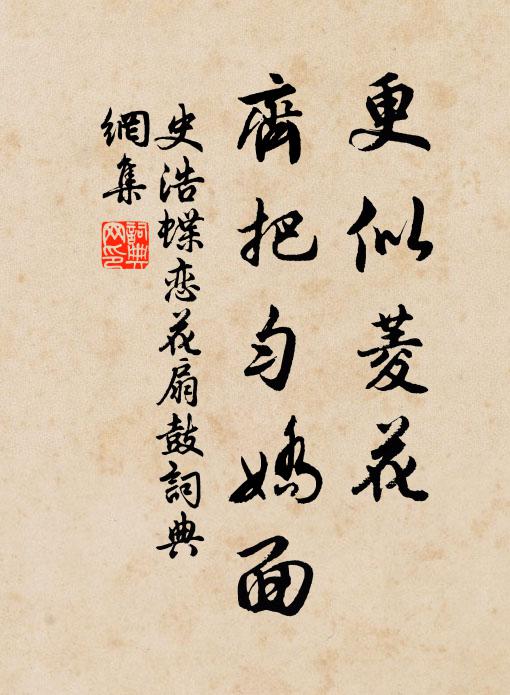 更似菱花
齊把勻嬌面
史浩蝶恋花扇鼓詞典
網集
詞典
网印